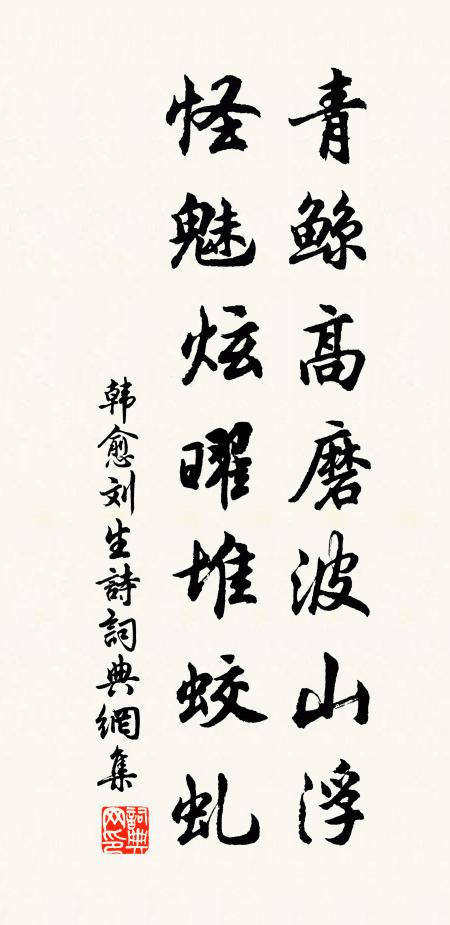 青鲸高磨波山浮
怪魅炫曜堆蛟虬
韩愈刘生詩詞典網集
詞典网印